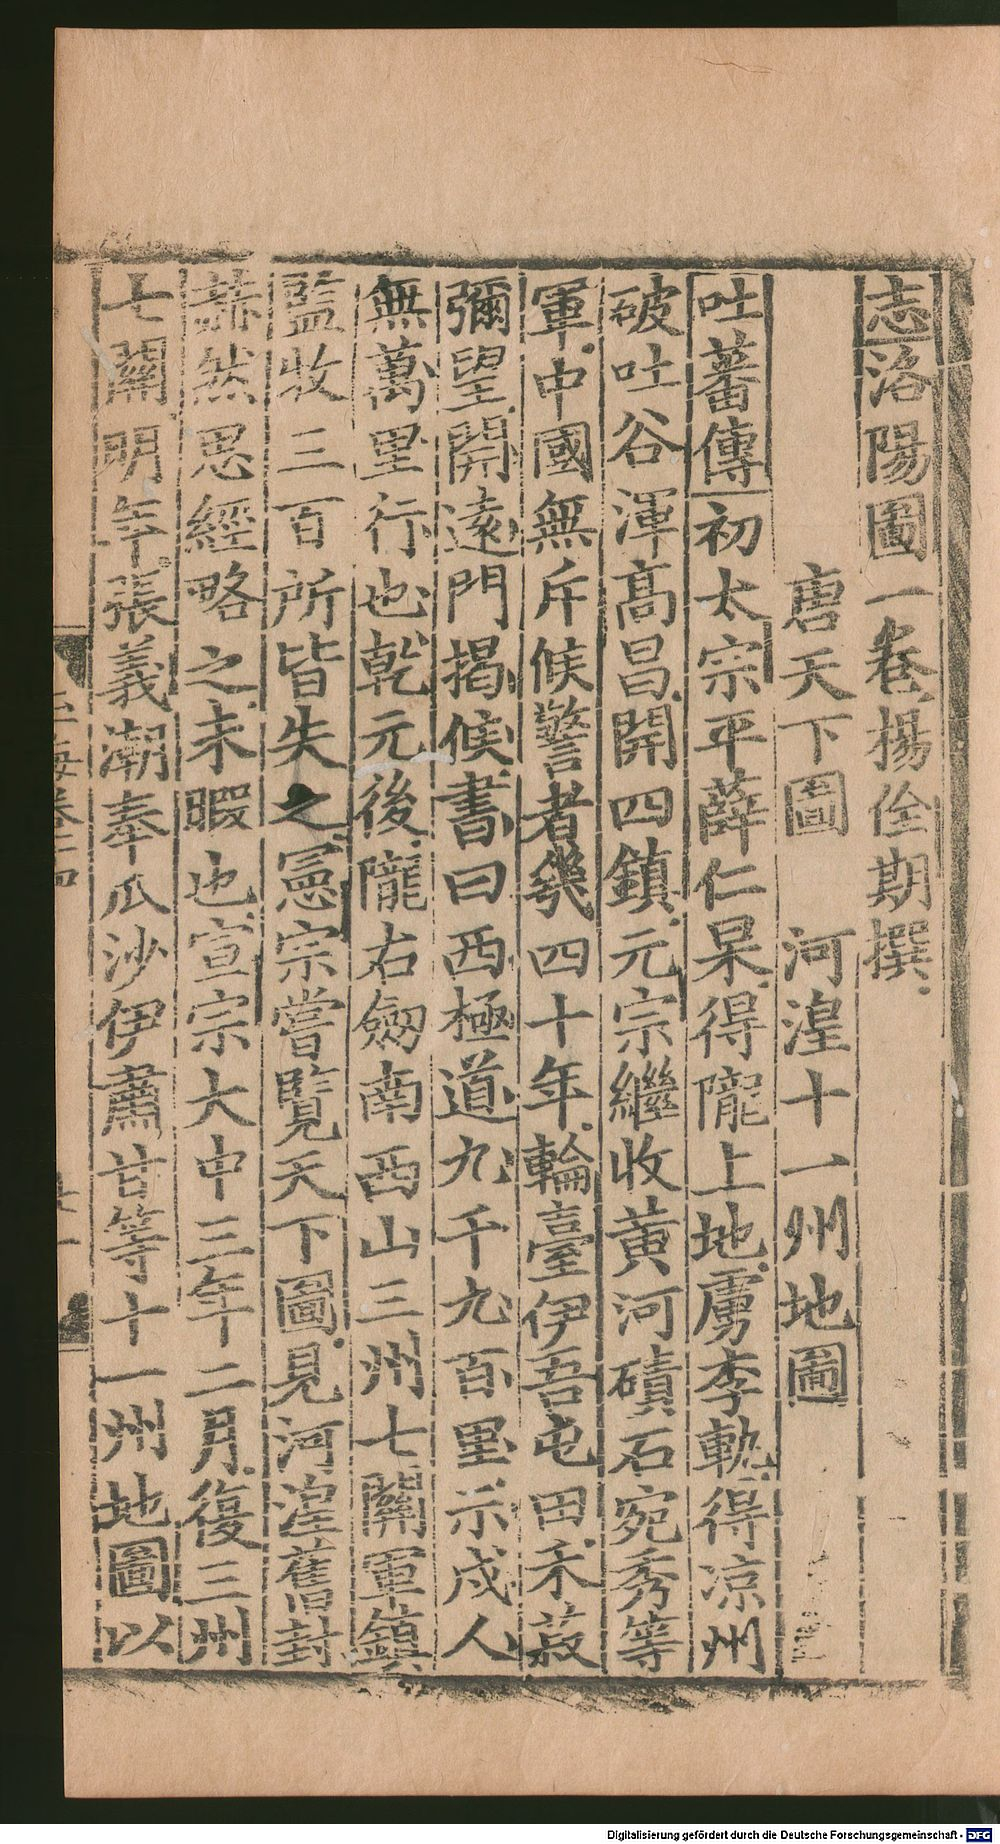 志洛陽圖一卷楊佺期撰
唐天下圖 河湟十一州地圖
吐蕃傳初太宗平薛仁杲得隴上地虜李軌得涼州
破吐谷渾高昌開四鎮元宗繼收黃河磧石宛秀等
軍中國無斥候警者幾四十年輪臺伊吾屯田禾菽
彌望開遠門揭候書曰西極道九千九百里示戍人
無萬里行也乾元後隴右劒南西山三州七關軍鎮
監收三百所皆失之憲宗嘗覽天下圖見河湟舊封
赫然思經略之未暇也宣宗大中三年二月復三州
七關明年張義潮奉瓜沙伊肅甘等十一州地圖以
玉海卷十四
Digitalisierung gefördert durch die Deutsche Forschungsgemeinschaft - DFG